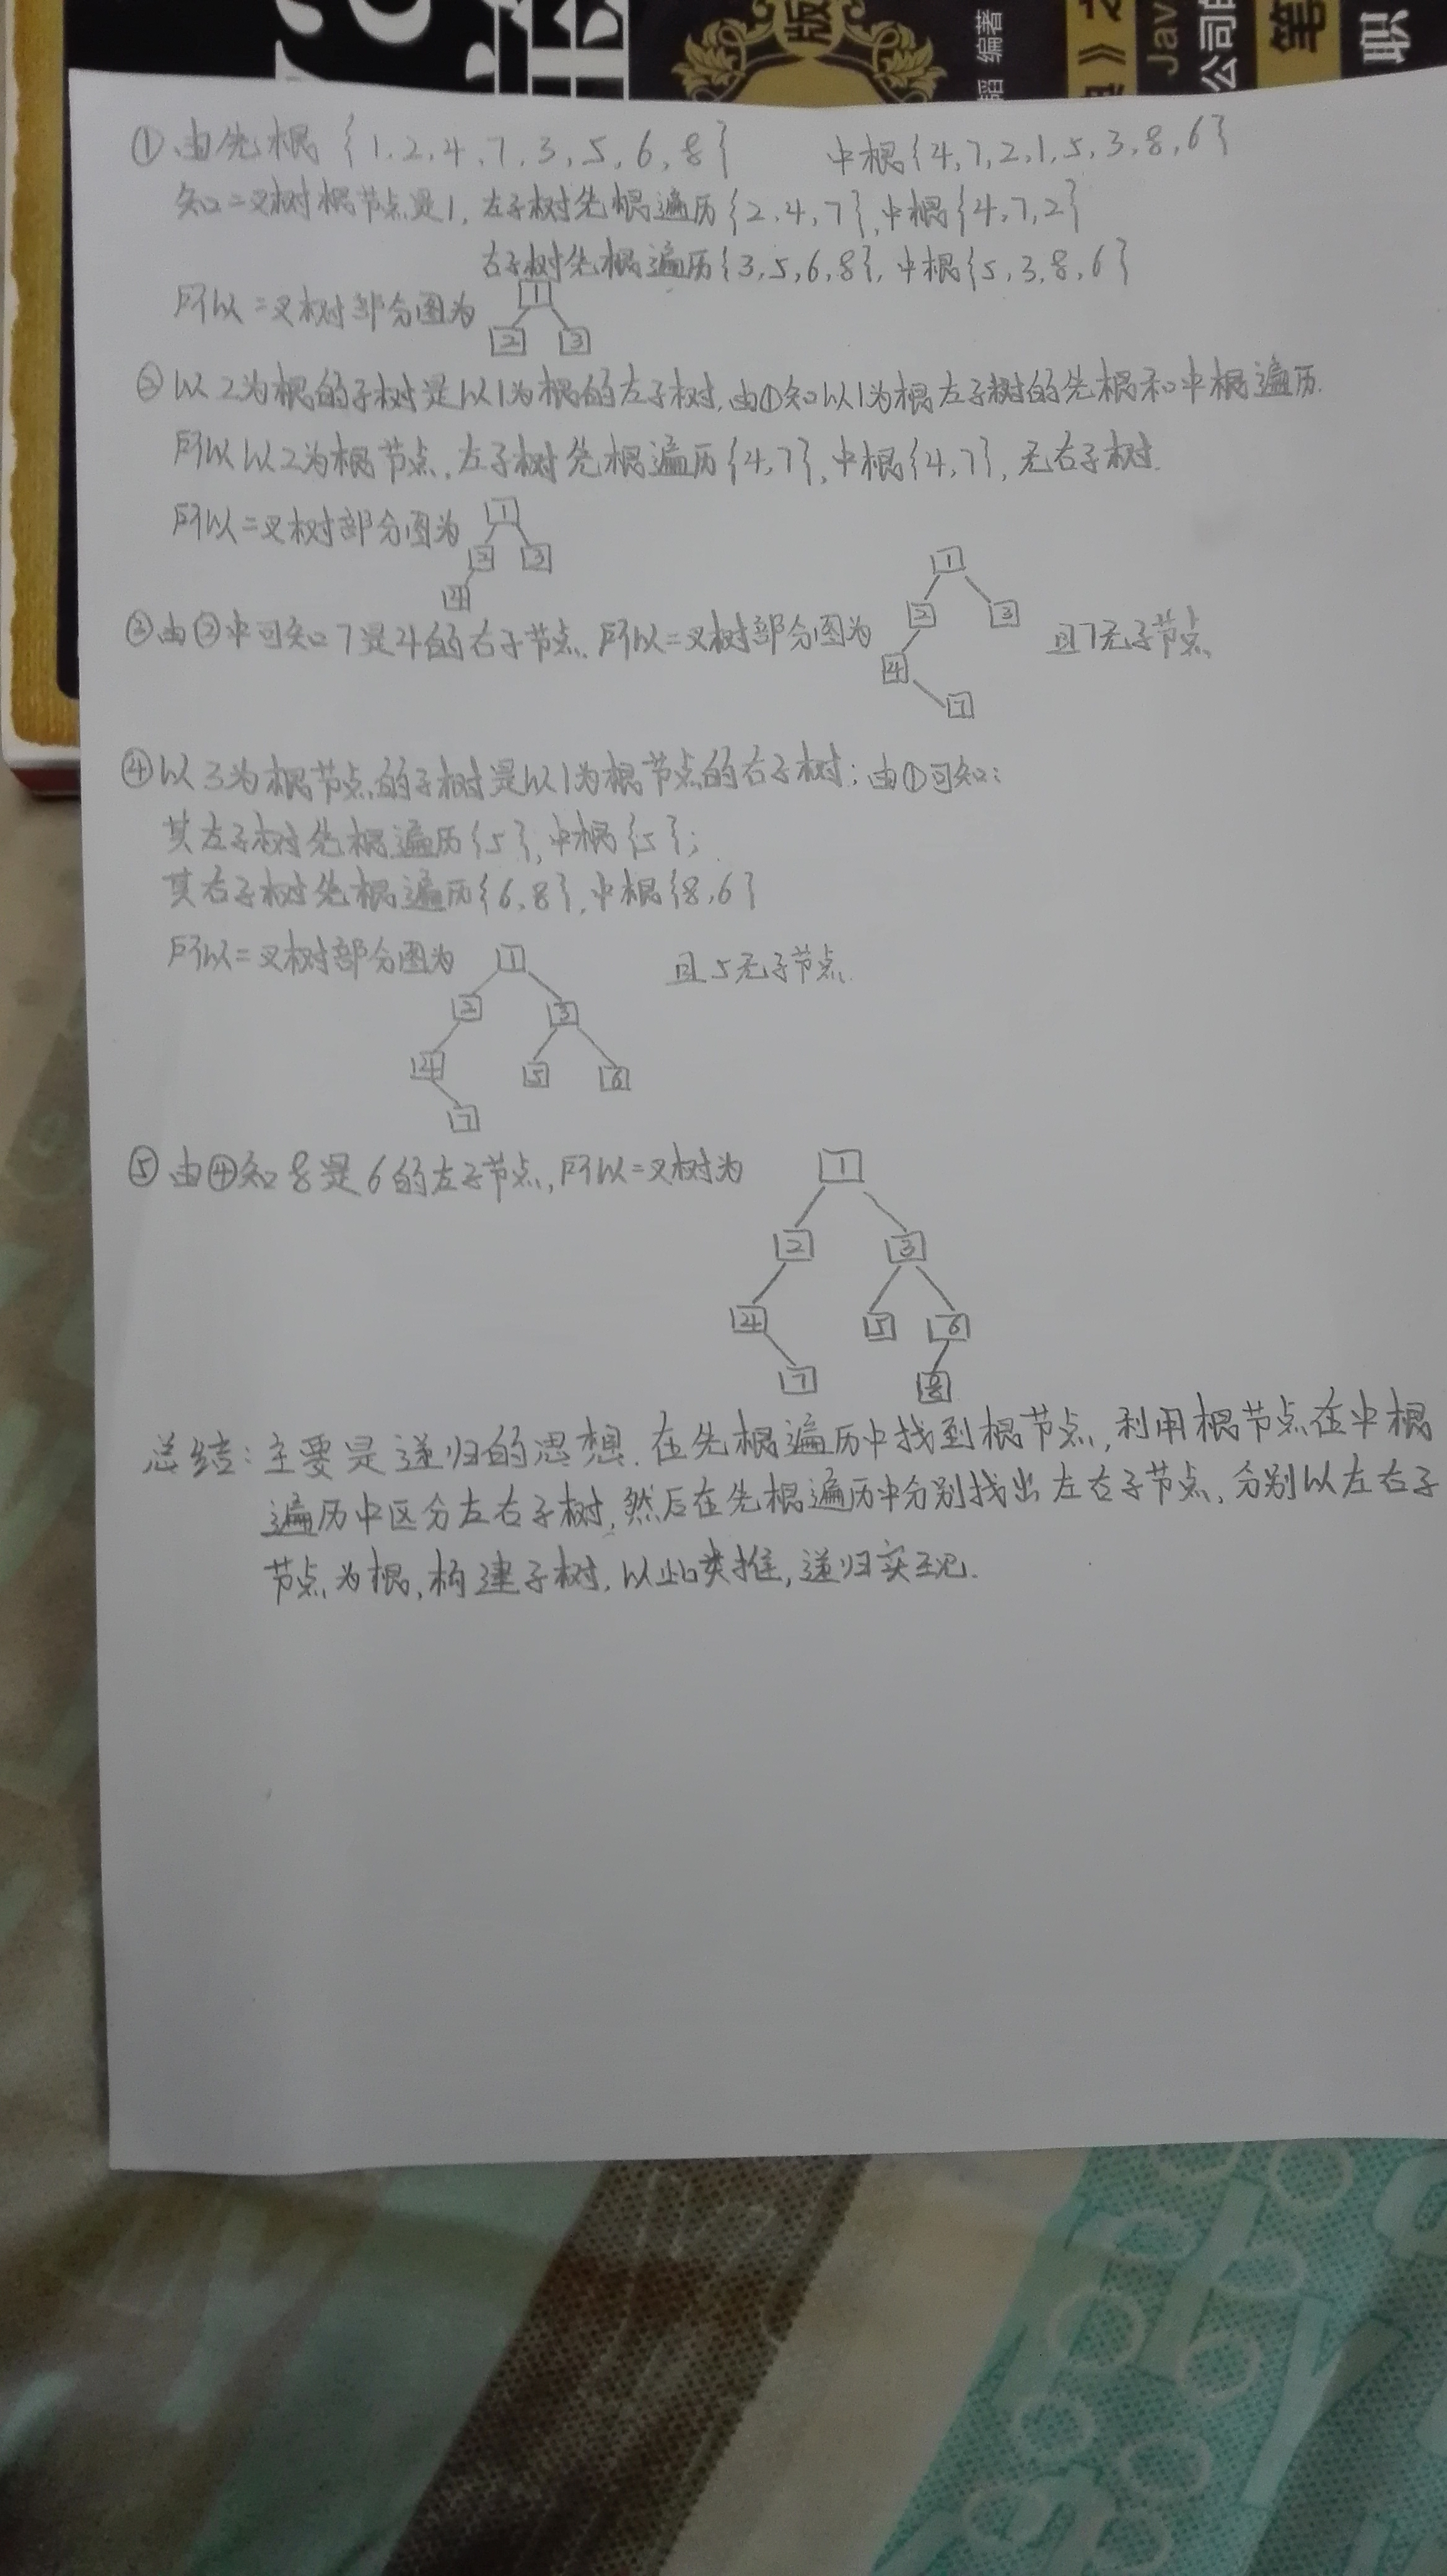 版
韬 编著
》之
Jav
公司的
笔
职
①由先根{1,2,4,7,3,5,6,8} 中根{4,7,2,1,5,3,8,6}
知二叉树根节点是1,左子树先根遍历{2,4,7},中根{4,7,2}
右子树先根遍历{3,5,6,8},中根{5,3,8,6}
所以二叉树部分图为
1
2 3
②以2为根的子树是以1为根的左子树,由①知以1为根左子树的先根和中根遍历.
所以以2为根节点,左子树先根遍历{4,7},中根{4,7},无右子树.
所以二叉树部分图为
1
2 3
4
③由②中可知7是4的右子节点.所以二叉树部分图为 且7无子节点.
1
2 3
4
7
④以3为根节点的子树是以1为根节点的右子树;由①可知:
其左子树先根遍历{5},中根{5};
其右子树先根遍历{6,8},中根{8,6}
所以二叉树部分图为 且5无子节点.
1
2 3
4 5 6
7
⑤由④知8是6的左子节点,所以二叉树为
1
2 3
4 5 6
7 8
总结:主要是递归的思想.在先根遍历中找到根节点,利用根节点在中根
遍历中区分左右子树,然后在先根遍历中分别找出左右子节点,分别以左右子
节点为根,构建子树,以此类推,递归实现.